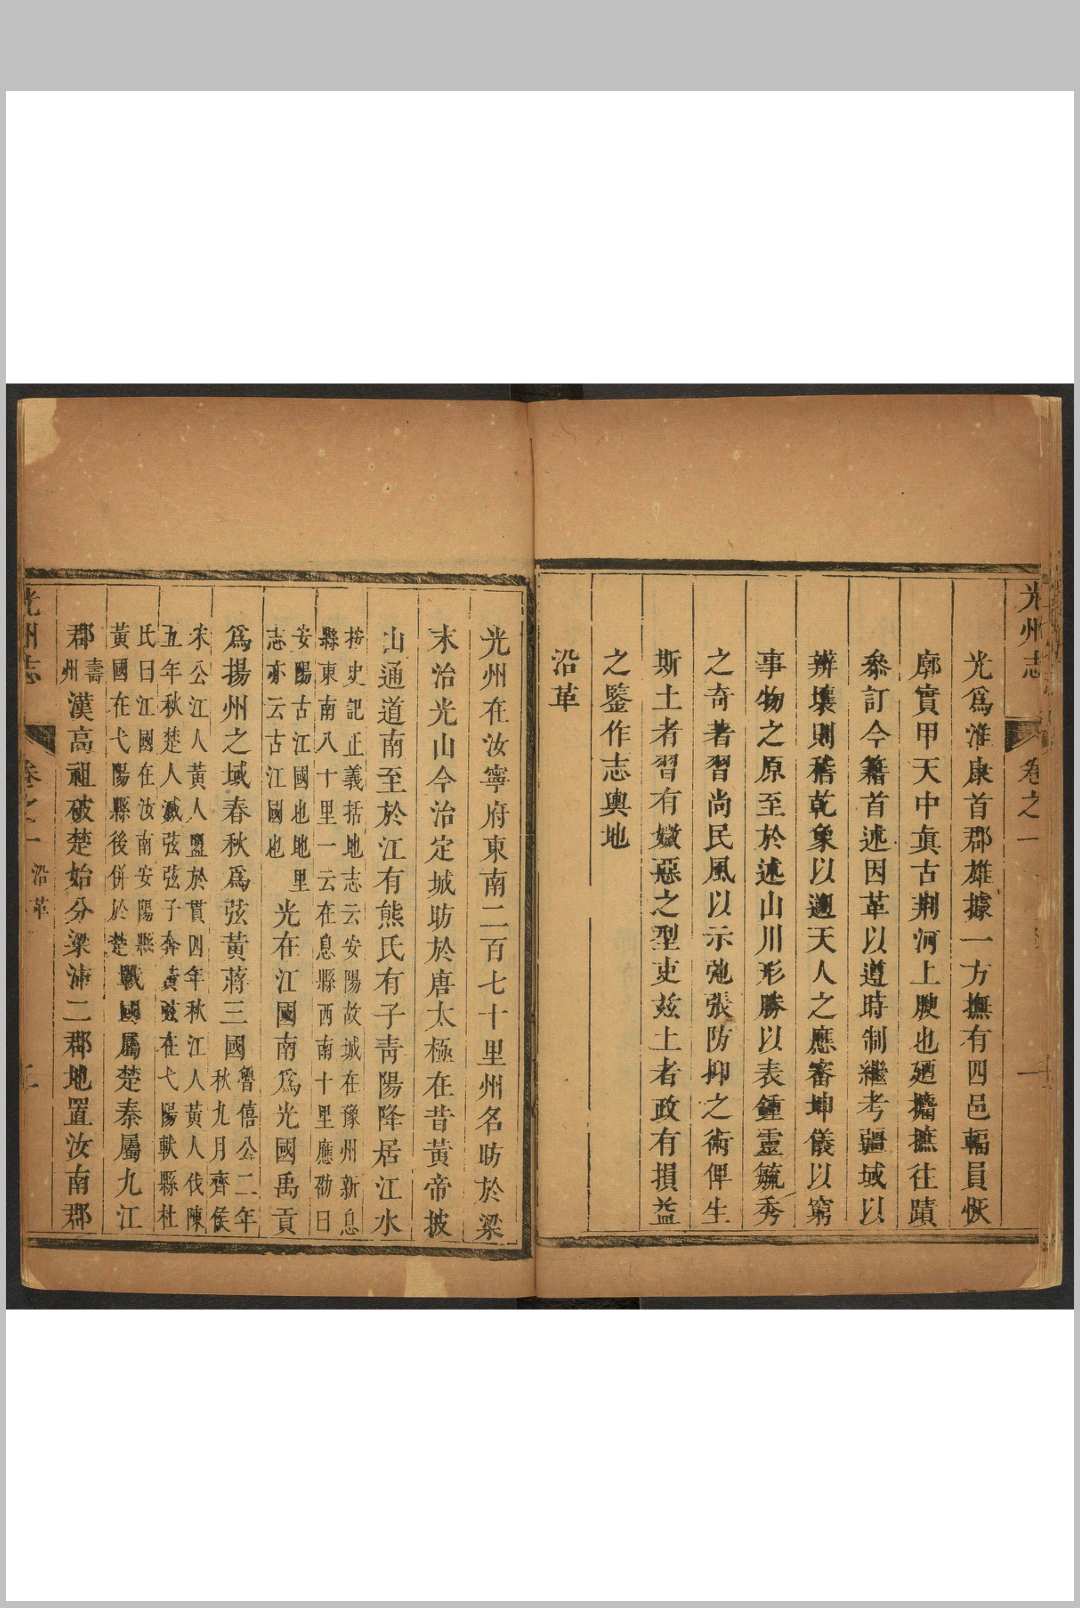 光州志 卷之一 一
光爲淮康首郡雄據一方撫有四邑輻員恢
廓實甲天中眞古荆河上腴也廼攟摭往蹟
參訂今籍首述因革以遵時制繼考疆域以
辨壤則稽乾象以遡天人之應審坤儀以窮
事物之原至於述山川形勝以表鍾靈毓秀
之奇著習尚民風以示弛張防抑之術俾生
斯土者習有媺惡之型吏兹土者政有損益
之鑒作志輿地
沿革
光州在汝寧府東南二百七十里州名昉於梁
末治光山今治定城昉於唐太極在昔黄帝披
山通道南至於江有熊氏有子靑陽降居江水
按史記正義括地志云安陽故城在豫州新息
縣東南八十里一云在息縣西南十里應劭曰
安陽古江國也地里
志亦云古江國也
光在江國南爲光國禹貢
爲揚州之域春秋爲弦黄蔣三國
魯僖公二年
秋九月齊侯
宋公江人黄人盟於貫四年秋江人黄人伐陳
五年秋楚人滅弦弦子奔黄弦在弋陽軑縣杜
氏曰江國在汝南安陽縣
黄國在弋陽縣後併於楚
戰國屬楚秦屬九江
郡
壽
州
漢高祖破楚始分梁沛二郡地置汝南郡
光州志 卷之一 沿革 二